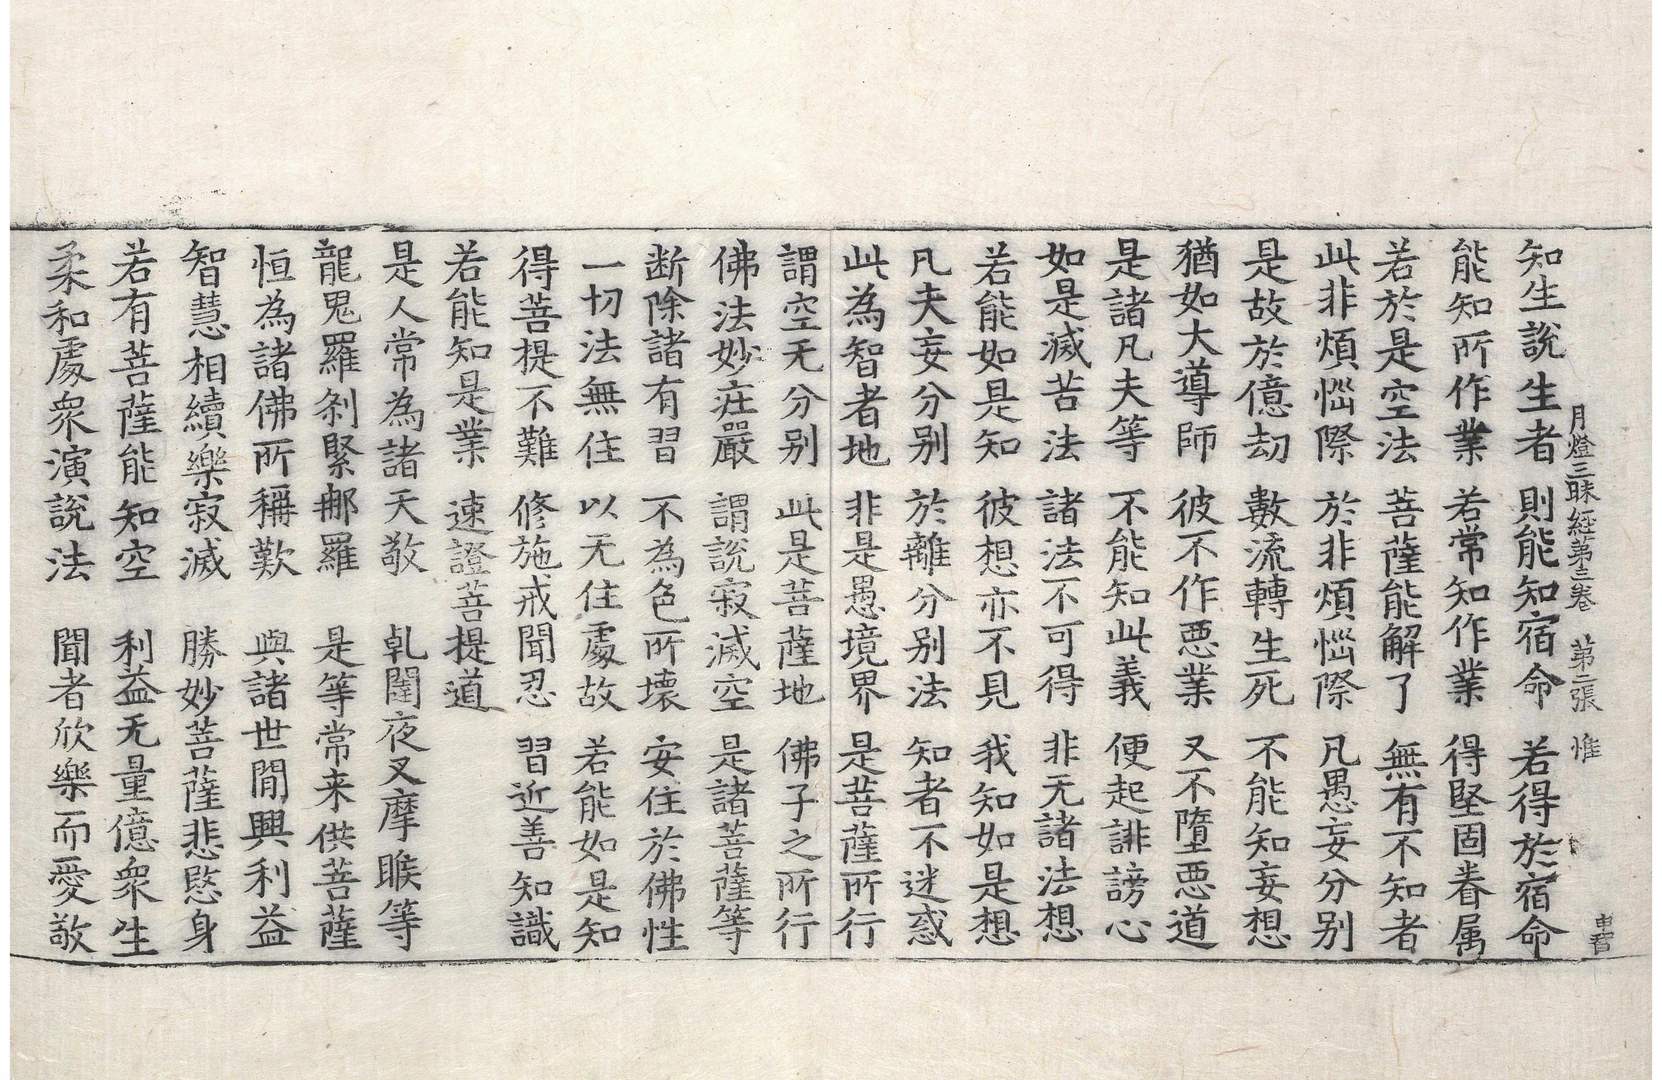 月燈三昧經第三卷　第二張　惟　申君
知生說生者　則能知宿命　若得於宿命
能知所作業　若常知作業　得堅固眷属
若於是空法　菩薩能解了　無有不知者
此非煩惱際　於非煩惱際　凡愚妄分别
是故於億劫　數流轉生死　不能知妄想
猶如大導師　彼不作惡業　又不墮惡道
是諸凡夫等　不能知此義　便起誹謗心
如是滅苦法　諸法不可得　非无諸法想
若能如是知　彼想亦不見　我知如是想
凡夫妄分别　於離分别法　知者不迷惑
此為智者地　非是愚境界　是菩薩所行
謂空无分别　此是菩薩地　佛子之所行
佛法妙莊嚴　謂說寂滅空　是諸菩薩等
断除諸有習　不為色所壞　安住於佛性
一切法無住　以无住處故　若能如是知
得菩提不難　修施戒聞忍　習近善知識
若能知是業　速證菩提道
是人常為諸天敬　乹闥夜叉摩睺等
龍鬼羅剎緊那羅　是等常来供菩薩
恒為諸佛所稱歎　與諸世間興利益
智慧相續樂寂滅　勝妙菩薩悲愍身
若有菩薩能知空　利益无量億衆生
柔和處衆演說法　聞者欣樂而愛敬